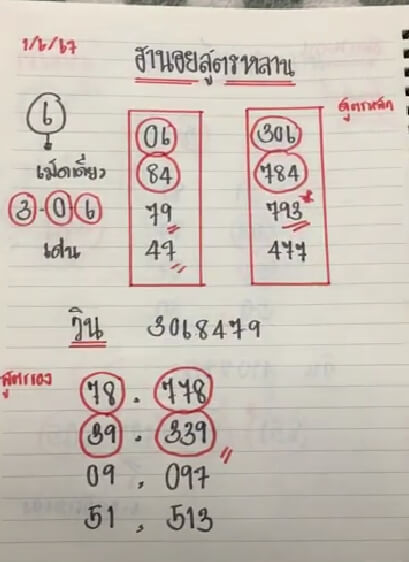 1/6/67
ฮานอยสูตรหลาน
สูตรหลัก
6
เม็ดเดี่ยว
3-0-6
เด่น
06 306
84 784
79 793
47 477
วิน 3068479
สูตรรอง
78 . 778
39 . 339
09 , 097
51 , 513